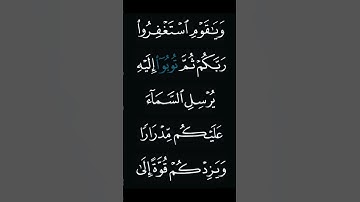 وَيَٰقَوْمِ ٱسْتَغْفِرُوا۟
رَبَّكُمْ ثُمَّ تُوبُوٓا۟ إِلَيْهِ
يُرْسِلِ ٱلسَّمَآءَ
عَلَيْكُم مِّدْرَارًا
وَيَزِدْكُمْ قُوَّةً إِلَىٰ